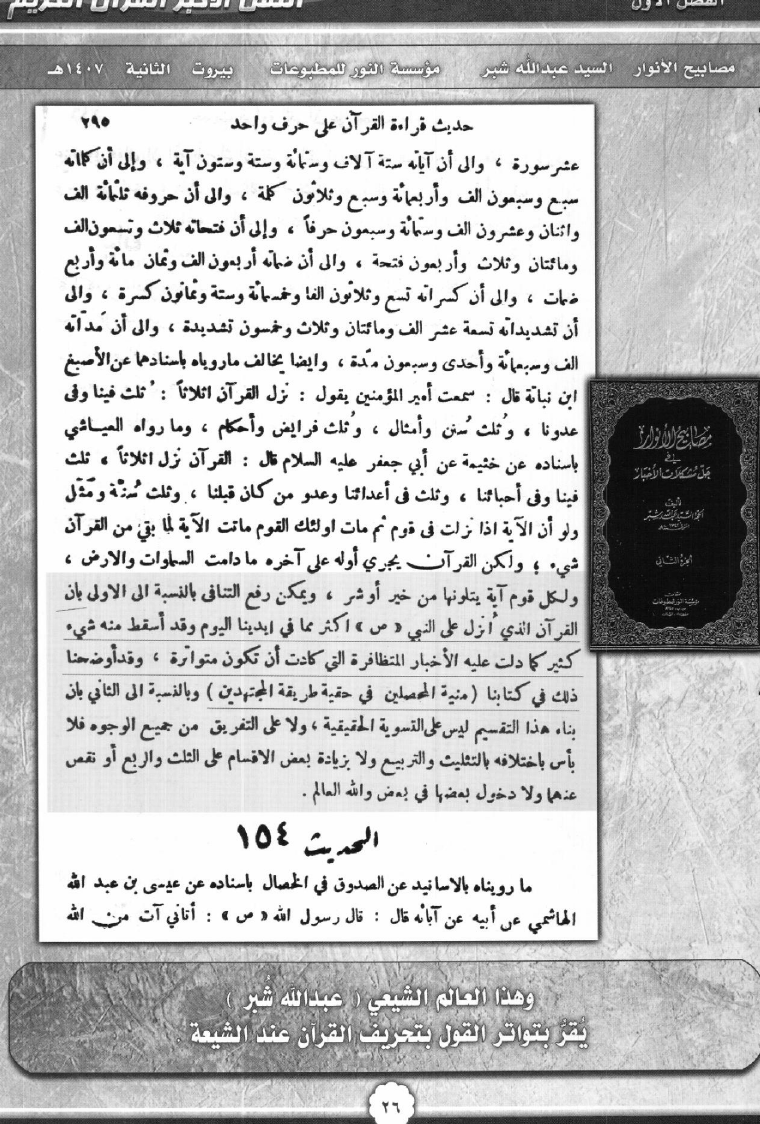 الفصل الأول
الثقل الأكبر القرآن الكريم
مصابيح الأنوار السيد عبدالله شبر مؤسسة النور للمطبوعات بيروت الثانية ١٤٠٧هـ
حديث قراءة القرآن على حرف واحد ٢٩٥
عشر سورة ، والى أن آياته ستة آلاف وستمائة وستة وستون آية ، وإلى أن كلماته
سبع وسبعون الف وأربعمائة وسبع وثلاثون كلمة ، والى أن حروفه ثلثمائة الف
واثنان وعشرون الف وستمائة وسبعون حرفاً ، وإلى أن فتحاته ثلاث وتسعون الف
ومائتان وثلاث وأربعون فتحة ، والى أن ضماته أربعون الف وثمان مائة وأربع
ضمات ، والى أن كسراته تسع وثلاثون الفا وخمسمائة وستة وثمانون كسرة ، والى
أن تشديداته تسعة عشر الف ومائتان وثلاث وخمسون تشديدة ، والى أن مداته
الف وسبعمائة وأحدى وسبعون مدة ، وايضا يخالف مارويناه باسنادهما عن الأصبغ
ابن نباتة قال : سمعت أمير المؤمنين يقول : نزل القرآن اثلاثاً : ثلث فينا وفى
عدونا ، وثلث سُنن وأمثال ، وثلث فرايض وأحكام ، وما رواه العياشي
باسناده عن خثيمة عن أبي جعفر عليه السلام قال : القرآن نزل اثلاثاً ، ثلث
فينا وفى أحبائنا ، وثلث فى أعدائنا وعدو من كان قبلنا ، وثلث سُنّة ومَثَل
ولو أن الآية اذا نزلت فى قوم ثم مات اولئك القوم ماتت الآية لما بقي من القرآن
شيء ؛ ولكن القرآن يجري أوله على آخره مادامت السماوات والارض ،
ولكل قوم آية يتلونها من خير أو شر ، ويمكن رفع التنافى بالنسبة الى الاولى بان
القرآن الذي أنزل على النبي « ص » اكثر مما في ايدينا اليوم وقد أسقط منه شيء
كثير كما دلت عليه الأخبار المتظافرة التي كادت أن تكون متواترة ، وقد أوضحنا
ذلك في كتابنا ( منية المحصلين في حقية طريقة المجتهدين ) وبالنسبة الى الثاني بان
بناء هذا التقسيم ليس على التسوية الحقيقية ، ولا على التفريق من جميع الوجوه فلا
بأس باختلافه بالتثليث والتربيع ولا بزيادة بعض الاقسام على الثلث والربع أو نقص
عنهما ولا دخول بعضها في بعض والله العالم .
الحديث ١٥٤
ما رويناه بالاسانيد عن الصدوق في الخصال باسناده عن عيسى بن عبد الله
الهاشمي عن أبيه عن آبائه قال : قال رسول الله « ص » : أتاني آت من الله
مصابيح الأنوار
في
حل مشكلات الأخبار
تأليف
الجزء الثاني
وهذا العالم الشيعي ( عبدالله شُبر )
يُقرُّ بتواتر القول بتحريف القرآن عند الشيعة .
٢٦